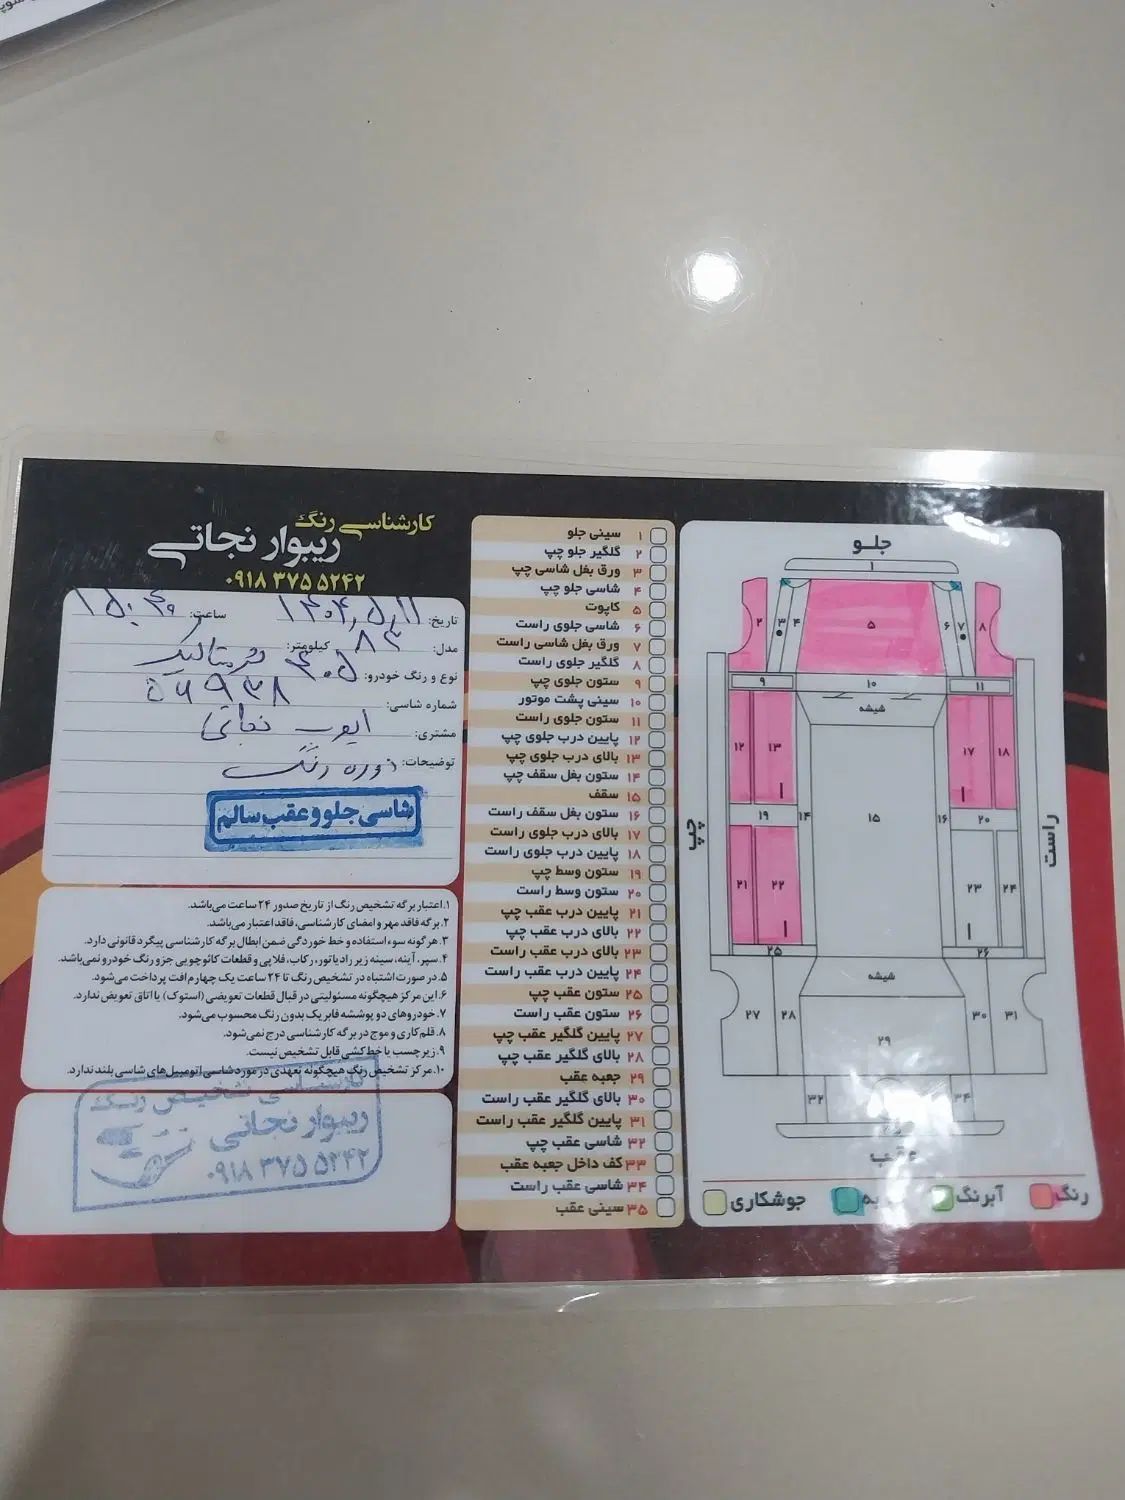 کارشناسی رنگ
ریبوار نجاتی
۰۹۱۸ ۳۷۵ ۵۲۴۲
تاریخ: ۱۴۰۴,۵,۱۱ ساعت: ۱۵:۴۰
مدل: ۸۳ کیلومتر:
نوع و رنگ خودرو: ۴۰۵ متالیک
شماره شاسی: ۵۶۹۳۸
مشتری: ایوب نجاتی
توضیحات: دوره رنگ
شاسی جلو و عقب سالم
۱. اعتبار برگه تشخیص رنگ از تاریخ صدور ۲۴ ساعت می‌باشد.
۲. برگه فاقد مهر و امضای کارشناسی، فاقد اعتبار می‌باشد.
۳. هرگونه سوء استفاده و خط خوردگی ضمن ابطال برگه کارشناسی پیگرد قانونی دارد.
۴. سپر، آینه، سینه زیر رادیاتور، رکاب، فلاپی و قطعات کائوچویی جزو رنگ خودرو نمی‌باشد.
۵. در صورت اشتباه در تشخیص رنگ تا ۲۴ ساعت یک چهارم افت پرداخت می‌شود.
۶. این مرکز هیچگونه مسئولیتی در قبال قطعات تعویضی (استوک) یا اتاق تعویض ندارد.
۷. خودروهای دو پوششه فابریک بدون رنگ محسوب می‌شود.
۸. قلم‌کاری و موج در برگه کارشناسی درج نمی‌شود.
۹. زیر چسب یا خط‌کشی قابل تشخیص نیست.
۱۰. مرکز تشخیص رنگ هیچگونه تعهدی در مورد شاسی اتومبیل‌های شاسی بلند ندارد.
کارشناسی تشخیص رنگ
ریبوار نجاتی
۰۹۱۸ ۳۷۵ ۵۲۴۲
۱ سینی جلو
۲ گلگیر جلو چپ
۳ ورق بغل شاسی چپ
۴ شاسی جلو چپ
۵ کاپوت
۶ شاسی جلوی راست
۷ ورق بغل شاسی راست
۸ گلگیر جلوی راست
۹ ستون جلوی چپ
۱۰ سینی پشت موتور
۱۱ ستون جلوی راست
۱۲ پایین درب جلوی چپ
۱۳ بالای درب جلوی چپ
۱۴ ستون بغل سقف چپ
۱۵ سقف
۱۶ ستون بغل سقف راست
۱۷ بالای درب جلوی راست
۱۸ پایین درب جلوی راست
۱۹ ستون وسط چپ
۲۰ ستون وسط راست
۲۱ پایین درب عقب چپ
۲۲ بالای درب عقب چپ
۲۳ بالای درب عقب راست
۲۴ پایین درب عقب راست
۲۵ ستون عقب چپ
۲۶ ستون عقب راست
۲۷ پایین گلگیر عقب چپ
۲۸ بالای گلگیر عقب چپ
۲۹ جعبه عقب
۳۰ بالای گلگیر عقب راست
۳۱ پایین گلگیر عقب راست
۳۲ شاسی عقب چپ
۳۳ کف داخل جعبه عقب
۳۴ شاسی عقب راست
۳۵ سینی عقب
جلو
۱
۲ ۳ ۴ ۵ ۶ ۷ ۸
۹ ۱۰ ۱۱
شیشه
۱۲ ۱۳ ۱۷ ۱۸
۱۹ ۱۴ ۱۵ ۱۶ ۲۰
چپ
راست
۲۱ ۲۲ ۲۳ ۲۴
۲۵ ۲۶
شیشه
۲۷ ۲۸ ۲۹ ۳۰ ۳۱
۳۲ ۳۴
عقب
رنگ آبرنگ جوشکاری